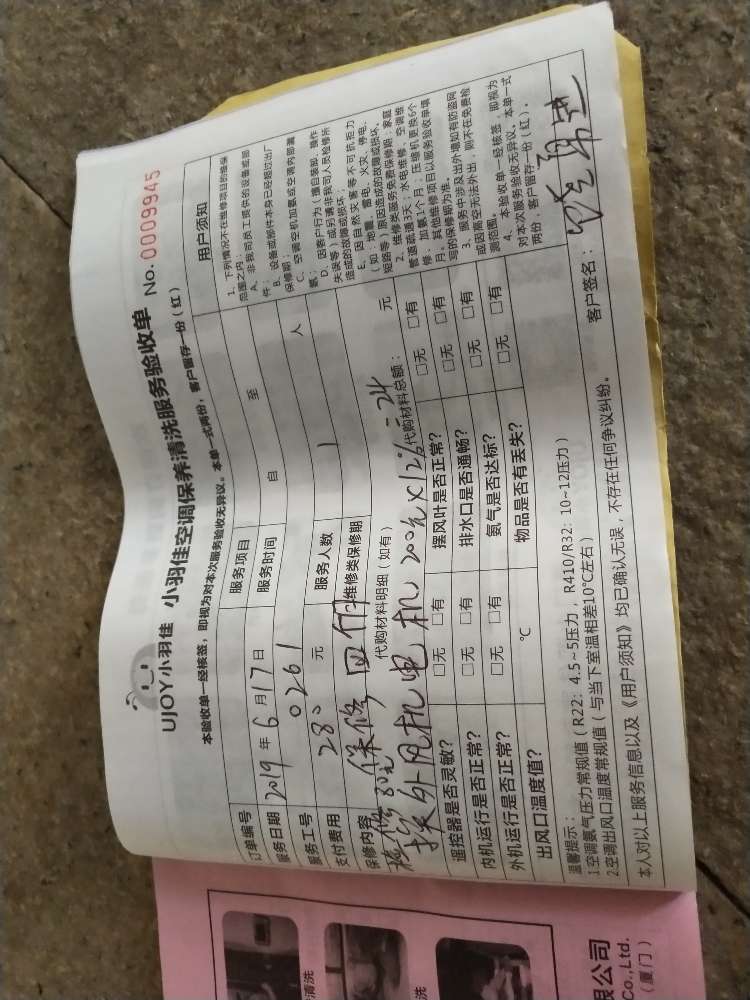 UJOY小羽佳 小羽佳空调保养清洗服务验收单 No. 0009945
本验收单一经核签，即视为对本次服务验收无异议。本单一式两份，客户留存一份（红）
订单编号 服务项目
服务日期 2019年6月17日 服务时间 自 至
服务工号 0261 服务人数 1 人
支付费用 280 元 维修类保修期
保修内容 保修
代购材料明细（如有） 代购材料总额： 元
换外风机电机 200元×12%=24
遥控器是否灵敏？ □无 □有 摆风叶是否正常？ □无 □有
内机运行是否正常？ □无 □有 排水口是否通畅？ □无 □有
外机运行是否正常？ □无 □有 氨气是否达标？ □无 □有
出风口温度值？ ℃ 物品是否有丢失？ □无 □有
用户须知
1、下列情况不在维修项目的维保
范围之内：
A、非我司员工提供的设备或部
件；
B、设备或部件本身已经超过出厂
保修期；
C、空调空机加氨或空调内部漏
氨；
D、因客户行为（擅自装卸、操作
失误等）或另请非我司人员检修所
造成的故障或损坏；
E、因自然灾害等不可抗拒力
（如：地震、雷电、火灾、停电、
短路等）原因造成的故障或损坏。
2、维修类服务免费保修期：家庭
管道疏通3天，水电维修、空调维
修：加氨1个月；压缩机更换6个
月。其他维修项目以服务验收单填
写的保修期为准。
3、服务中涉及出外墙如有防盗网
或因高空无法外出，则不在免费检
测范围。
4、本验收单一经核签，即视为
对本次服务验收无异议。本单一式
两份，客户留存一份（红）。
温馨提示：
1空调氨气压力常规值（R22：4.5~5压力，R410/R32：10~12压力）
2.空调出风口温度常规值（与当下室温相差10℃左右）
本人对以上服务信息以及《用户须知》均已确认无误，不存在任何争议纠纷。 客户签名：
限公司
Co.,Ltd.
（厦门）
清洗
洗